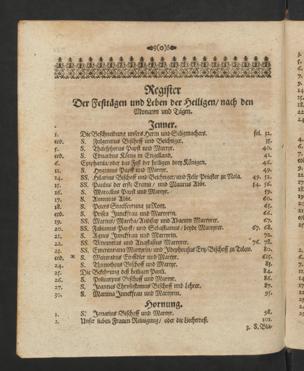 (o)
Register
Der Festtägen und Leben der Heiligen/ nach den
Monaten und Tägen.
Jenner.
1. Die Beschneidung unsers Herrn und Seligmachers. fol. 32.
eod. S. Fulgentius Bischoff und Beichtiger.
5. S. Thelesphorus Papst und Martyr. 40.
eod. S. Eduardus König in Engelland. 41.
6. Epiphania/ oder das Fest der heiligen drey Königen.
11. S. Hyginus Papst und Martyr. 49.
14. SS. Hilarius Bischoff und Beichtiger/ und Felix Priester zu Nola.
15. SS. Paulus der erste Eremit/ und Maurus Abbt. 54. 56.
16. S. Marcellus Papst und Martyr.
17. S. Antonius Abbt. 60.
18. S. Peters Stuhlfeyr zu Rom. 65.
eod. S. Prisca Junckfrau und Martyrin. 66.
19. SS. Marius/ Martha Audifax und Abacum Martyrer. 67.
20. SS. Fabianus Papst/ und Sebastianus/ beyde Martyrer. 67.
21. S. Agnes Junckfrau und Martyrin.
22. SS. Vincentius und Anastasius Martyrer. 76. 78.
23. SS. Emerentiana Martyrin/ und Ildephonsus Ertz-Bischoff zu Toledo.
eod. S.
24. S. Timotheus Bischoff und Martyr. 81.
25. Die Bekehrung deß heiligen Pauli. 84.
26. S. Polycarpus Bischoff und Martyr. 86.
27. S. Joannes Chrysostomus Bischoff und Lehrer. 87.
30. S. Martina Junckfrau und Martyrin. 95.
Hornung.
1. S. Ignatius Bischoff und Martyr. 98.
2. Unser lieben Frauen Reinigung/ oder die Liechtmeß. 102.
3. S. Bla-